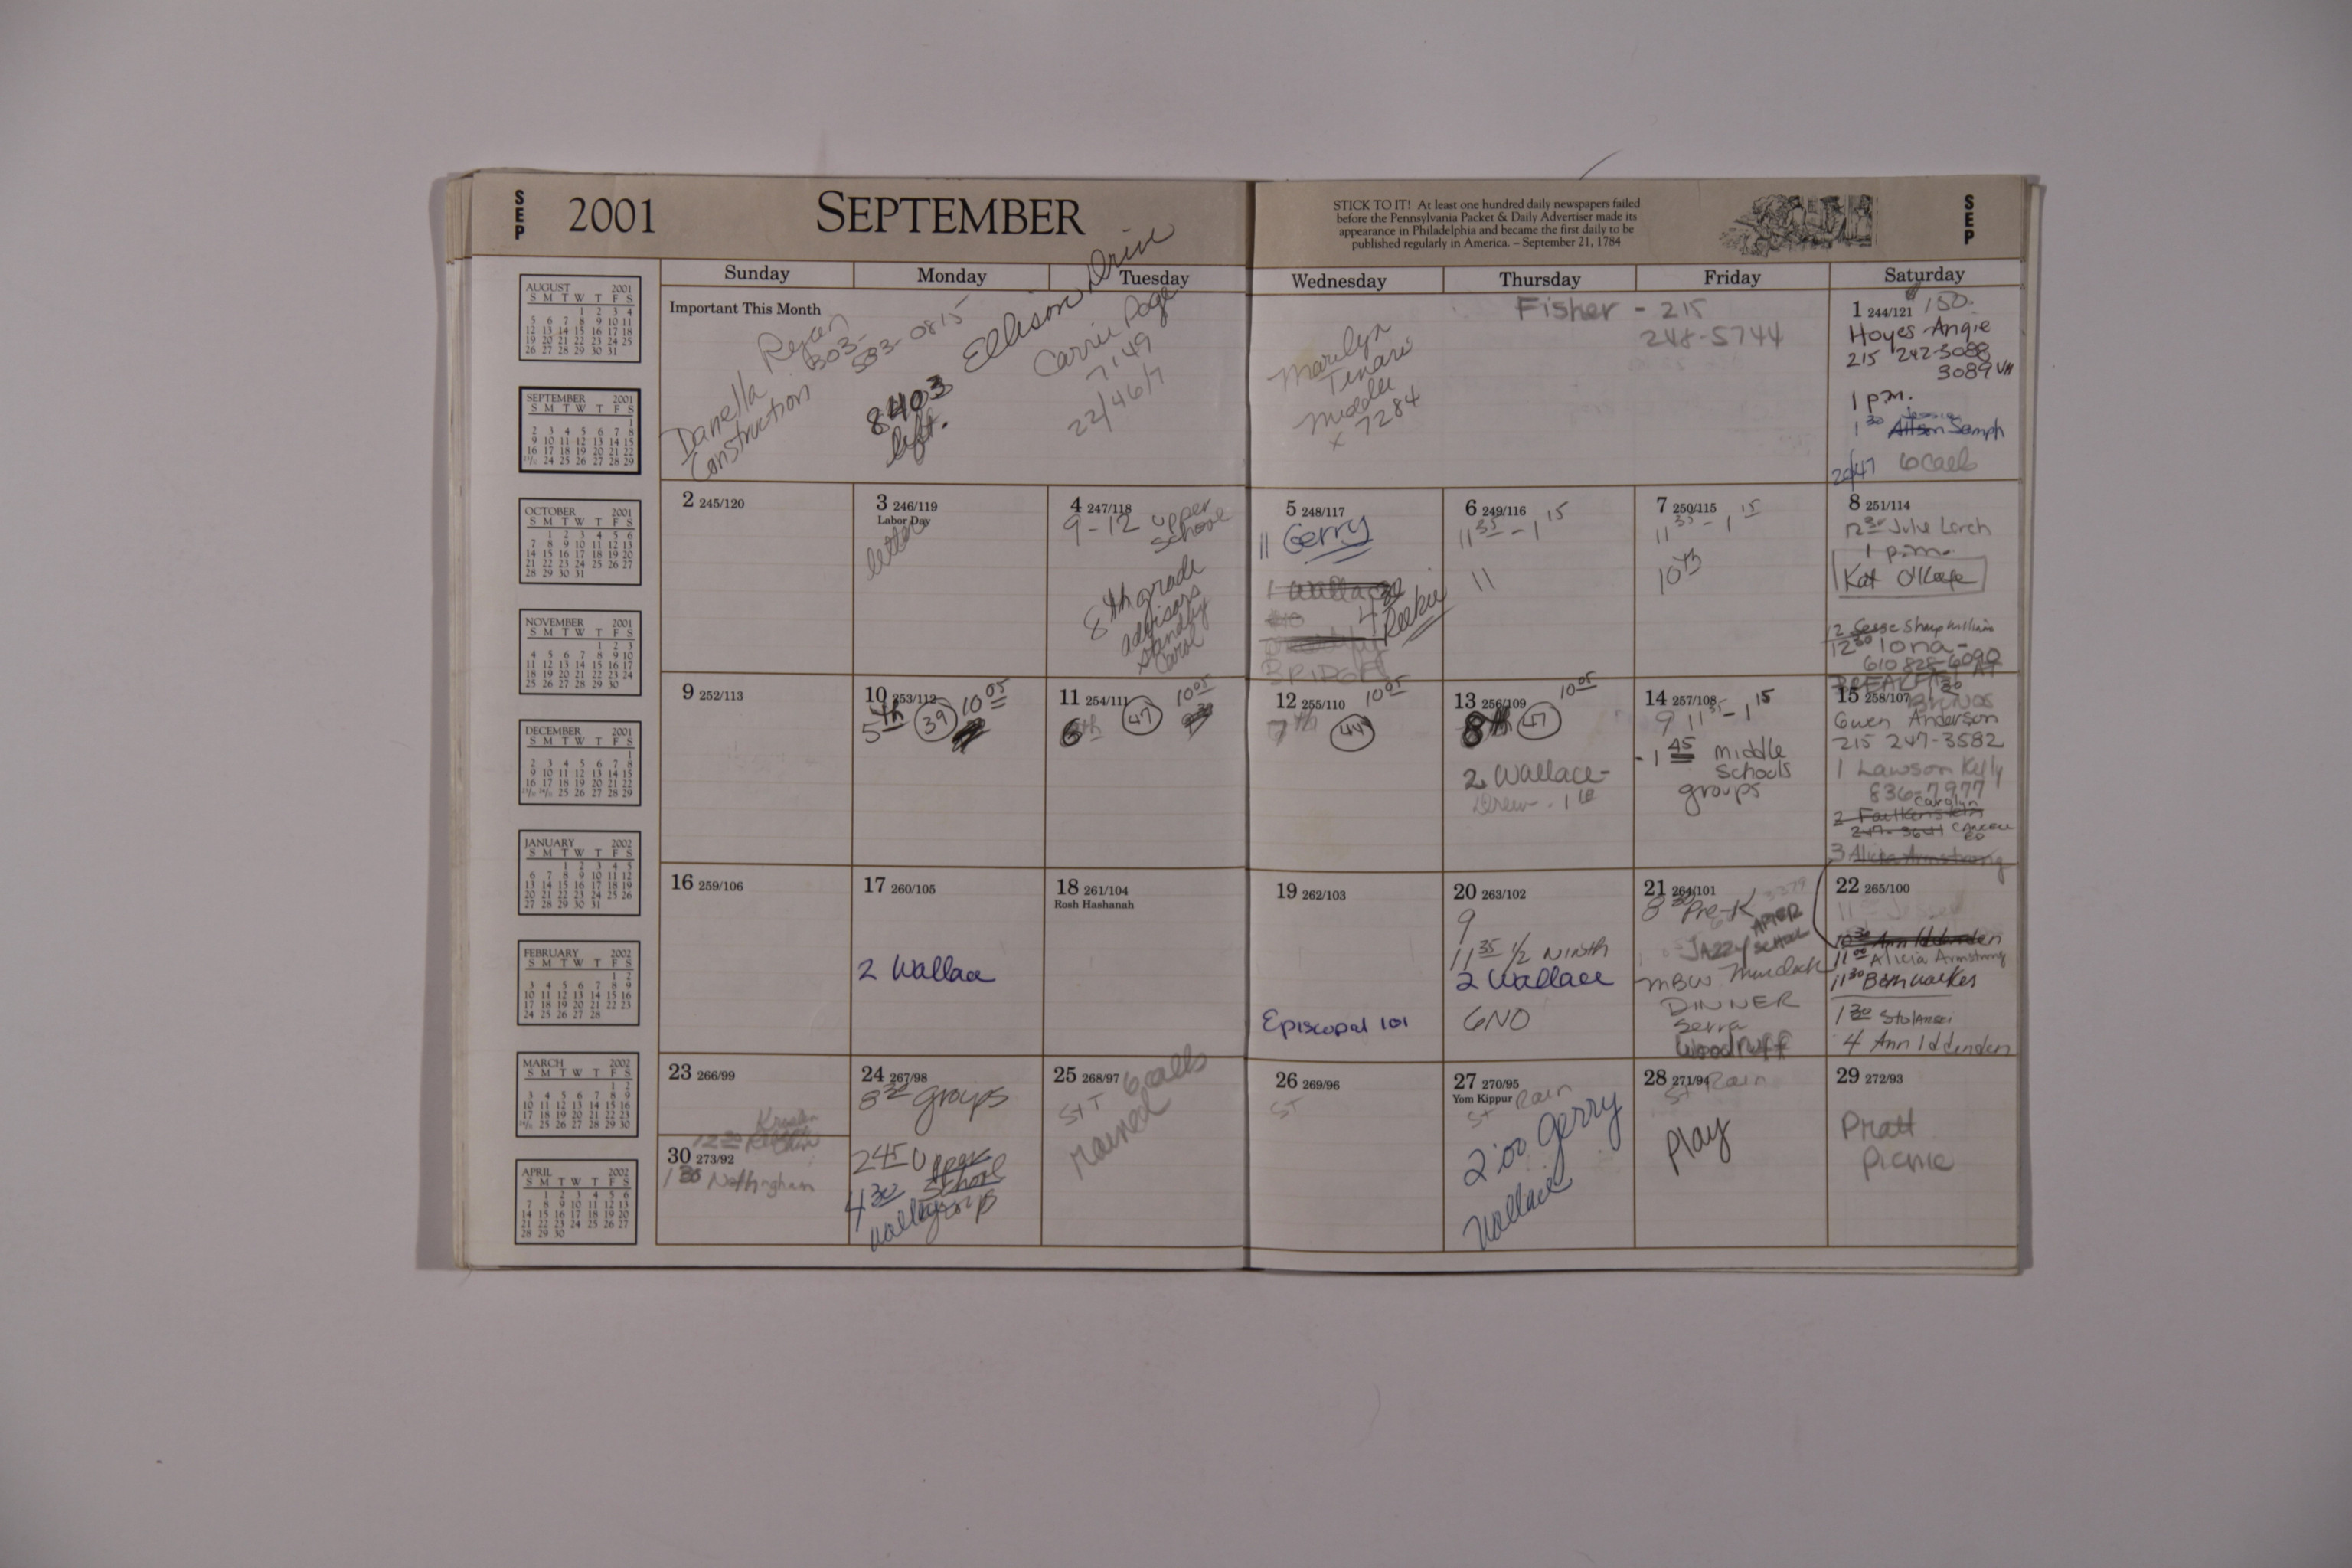 SEP
2001
SEPTEMBER
STICK TO IT! At least one hundred daily newspapers failed
before the Pennsylvania Packet & Daily Advertiser made its
appearance in Philadelphia and became the first daily to be
published regularly in America. – September 21, 1784
SEP
Sunday Monday Tuesday Wednesday Thursday Friday Saturday
Important This Month
Ryan
303-
583-0815
Danella
Construction
8403
Ellison Drive
left.
Carrie Page
7'49
22/46/7
Marilyn
Tinari
Middle
x 7284
Fisher - 215
248-5744
1 244/121 150.
Hoyes-Angie
215 242-3088
3089
1 p.m.
Jessica
1 30 Semph
20/47
2 245/120
3 246/119
Labor Day
letter
4 247/118
9-12 upper
school
8th grade
advisors
standby
Carol
5 248/117
11 Gerry
1 Wallace
4 30
BRIDGET
6 249/116
11 35 - 1 15
11
7 250/115
11 35 - 1 15
10th
8 251/114
12 30 Julie Lorch
1 p.m.
Kat O'Keefe
12 Sharp Williams
12 30 Iona -
610 828-6090
BREAKFAST AT
9 252/113
10 253/112
10 05
5th 39
11 254/111
10 05
6th 47
12 255/110
10 05
7th 44
13 256/109
10 05
8th 47
2 Wallace-
Drew - 1
14 257/108
9 11 35 - 1 15
- 1 45 middle
schools
groups
15 258/107
BRUNOS
Gwen Anderson
215 247-3582
1 Lawson Kelly
836-7977
Carolyn
2 Faulkenstein
247-3641 CANCELLED
3 Alicia Armstrong
16 259/106
17 260/105
2 Wallace
18 261/104
Rosh Hashanah
19 262/103
Episcopal 101
20 263/102
9
11 35 1/2 Ninth
2 Wallace
GNO
21 264/101
8 30 Pre-K
JAZZY AFTER
SCHOOL
MBW Murdock
DINNER
Serra
Woodruff
22 265/100
10 30 Ann Iddenden
11 00 Alicia Armstrong
11 30
1 30
4 Ann Iddenden
23 266/99
12 30
30 273/92
1 30 Nottingham
24 267/98
8 30 groups
2 45 Upper
School
4 30
groups
25 268/97
ST
26 269/96
ST
27 270/95
Yom Kippur
ST Rain
2:00 Gerry
Wallace
28 271/94
ST Rain
Play
29 272/93
Pratt
Picnic
AUGUST 2001
S M T W T F S
1 2 3 4
5 6 7 8 9 10 11
12 13 14 15 16 17 18
19 20 21 22 23 24 25
26 27 28 29 30 31
SEPTEMBER 2001
S M T W T F S
1
2 3 4 5 6 7 8
9 10 11 12 13 14 15
16 17 18 19 20 21 22
23/30 24 25 26 27 28 29
OCTOBER 2001
S M T W T F S
1 2 3 4 5 6
7 8 9 10 11 12 13
14 15 16 17 18 19 20
21 22 23 24 25 26 27
28 29 30 31
NOVEMBER 2001
S M T W T F S
1 2 3
4 5 6 7 8 9 10
11 12 13 14 15 16 17
18 19 20 21 22 23 24
25 26 27 28 29 30
DECEMBER 2001
S M T W T F S
1
2 3 4 5 6 7 8
9 10 11 12 13 14 15
16 17 18 19 20 21 22
23/30 24/31 25 26 27 28 29
JANUARY 2002
S M T W T F S
1 2 3 4 5
6 7 8 9 10 11 12
13 14 15 16 17 18 19
20 21 22 23 24 25 26
27 28 29 30 31
FEBRUARY 2002
S M T W T F S
1 2
3 4 5 6 7 8 9
10 11 12 13 14 15 16
17 18 19 20 21 22 23
24 25 26 27 28
MARCH 2002
S M T W T F S
1 2
3 4 5 6 7 8 9
10 11 12 13 14 15 16
17 18 19 20 21 22 23
24/31 25 26 27 28 29 30
APRIL 2002
S M T W T F S
1 2 3 4 5 6
7 8 9 10 11 12 13
14 15 16 17 18 19 20
21 22 23 24 25 26 27
28 29 30